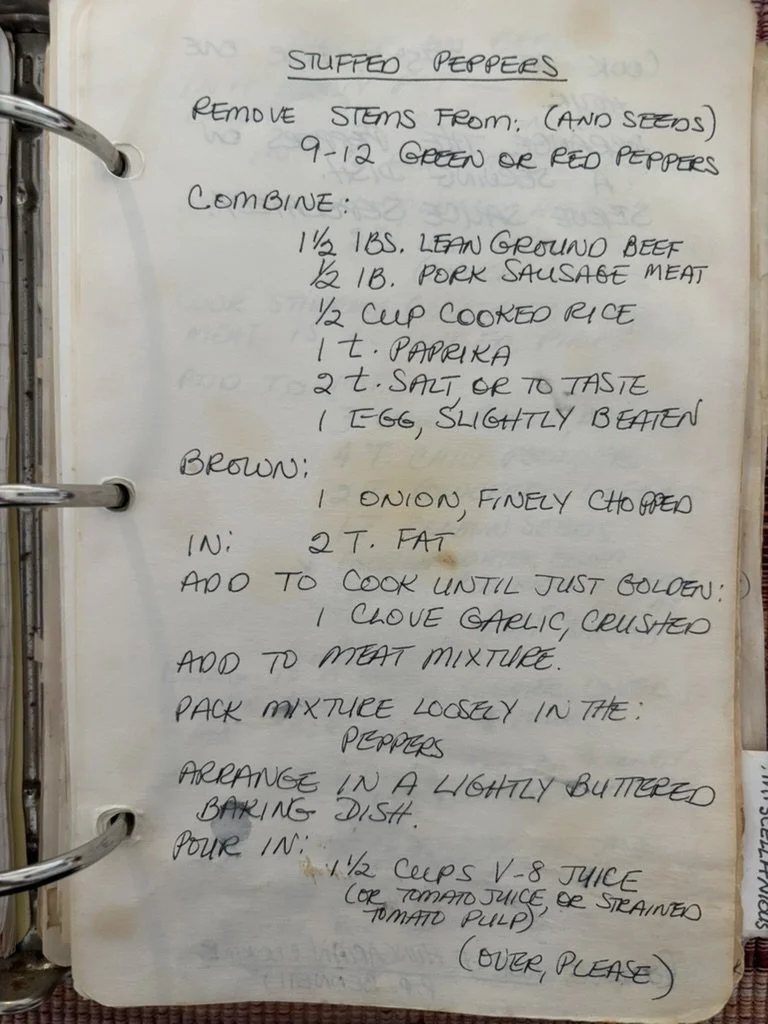 STUFFED PEPPERS
REMOVE STEMS FROM: (AND SEEDS)
9-12 GREEN OR RED PEPPERS
COMBINE:
1 1/2 lBS. LEAN GROUND BEEF
1/2 lB. PORK SAUSAGE MEAT
1/2 CUP COOKED RICE
1 t. PAPRIKA
2 t. SALT, OR TO TASTE
1 EGG, SLIGHTLY BEATEN
BROWN:
1 ONION, FINELY CHOPPED
IN: 2 T. FAT
ADD TO COOK UNTIL JUST GOLDEN:
1 CLOVE GARLIC, CRUSHED
ADD TO MEAT MIXTURE.
PACK MIXTURE LOOSELY IN THE:
PEPPERS
ARRANGE IN A LIGHTLY BUTTERED
BAKING DISH.
POUR IN:
1 1/2 CUPS V-8 JUICE
(OR TOMATO JUICE, OR STRAINED
TOMATO PULP)
(OVER, PLEASE)
MISCELLANEOUS